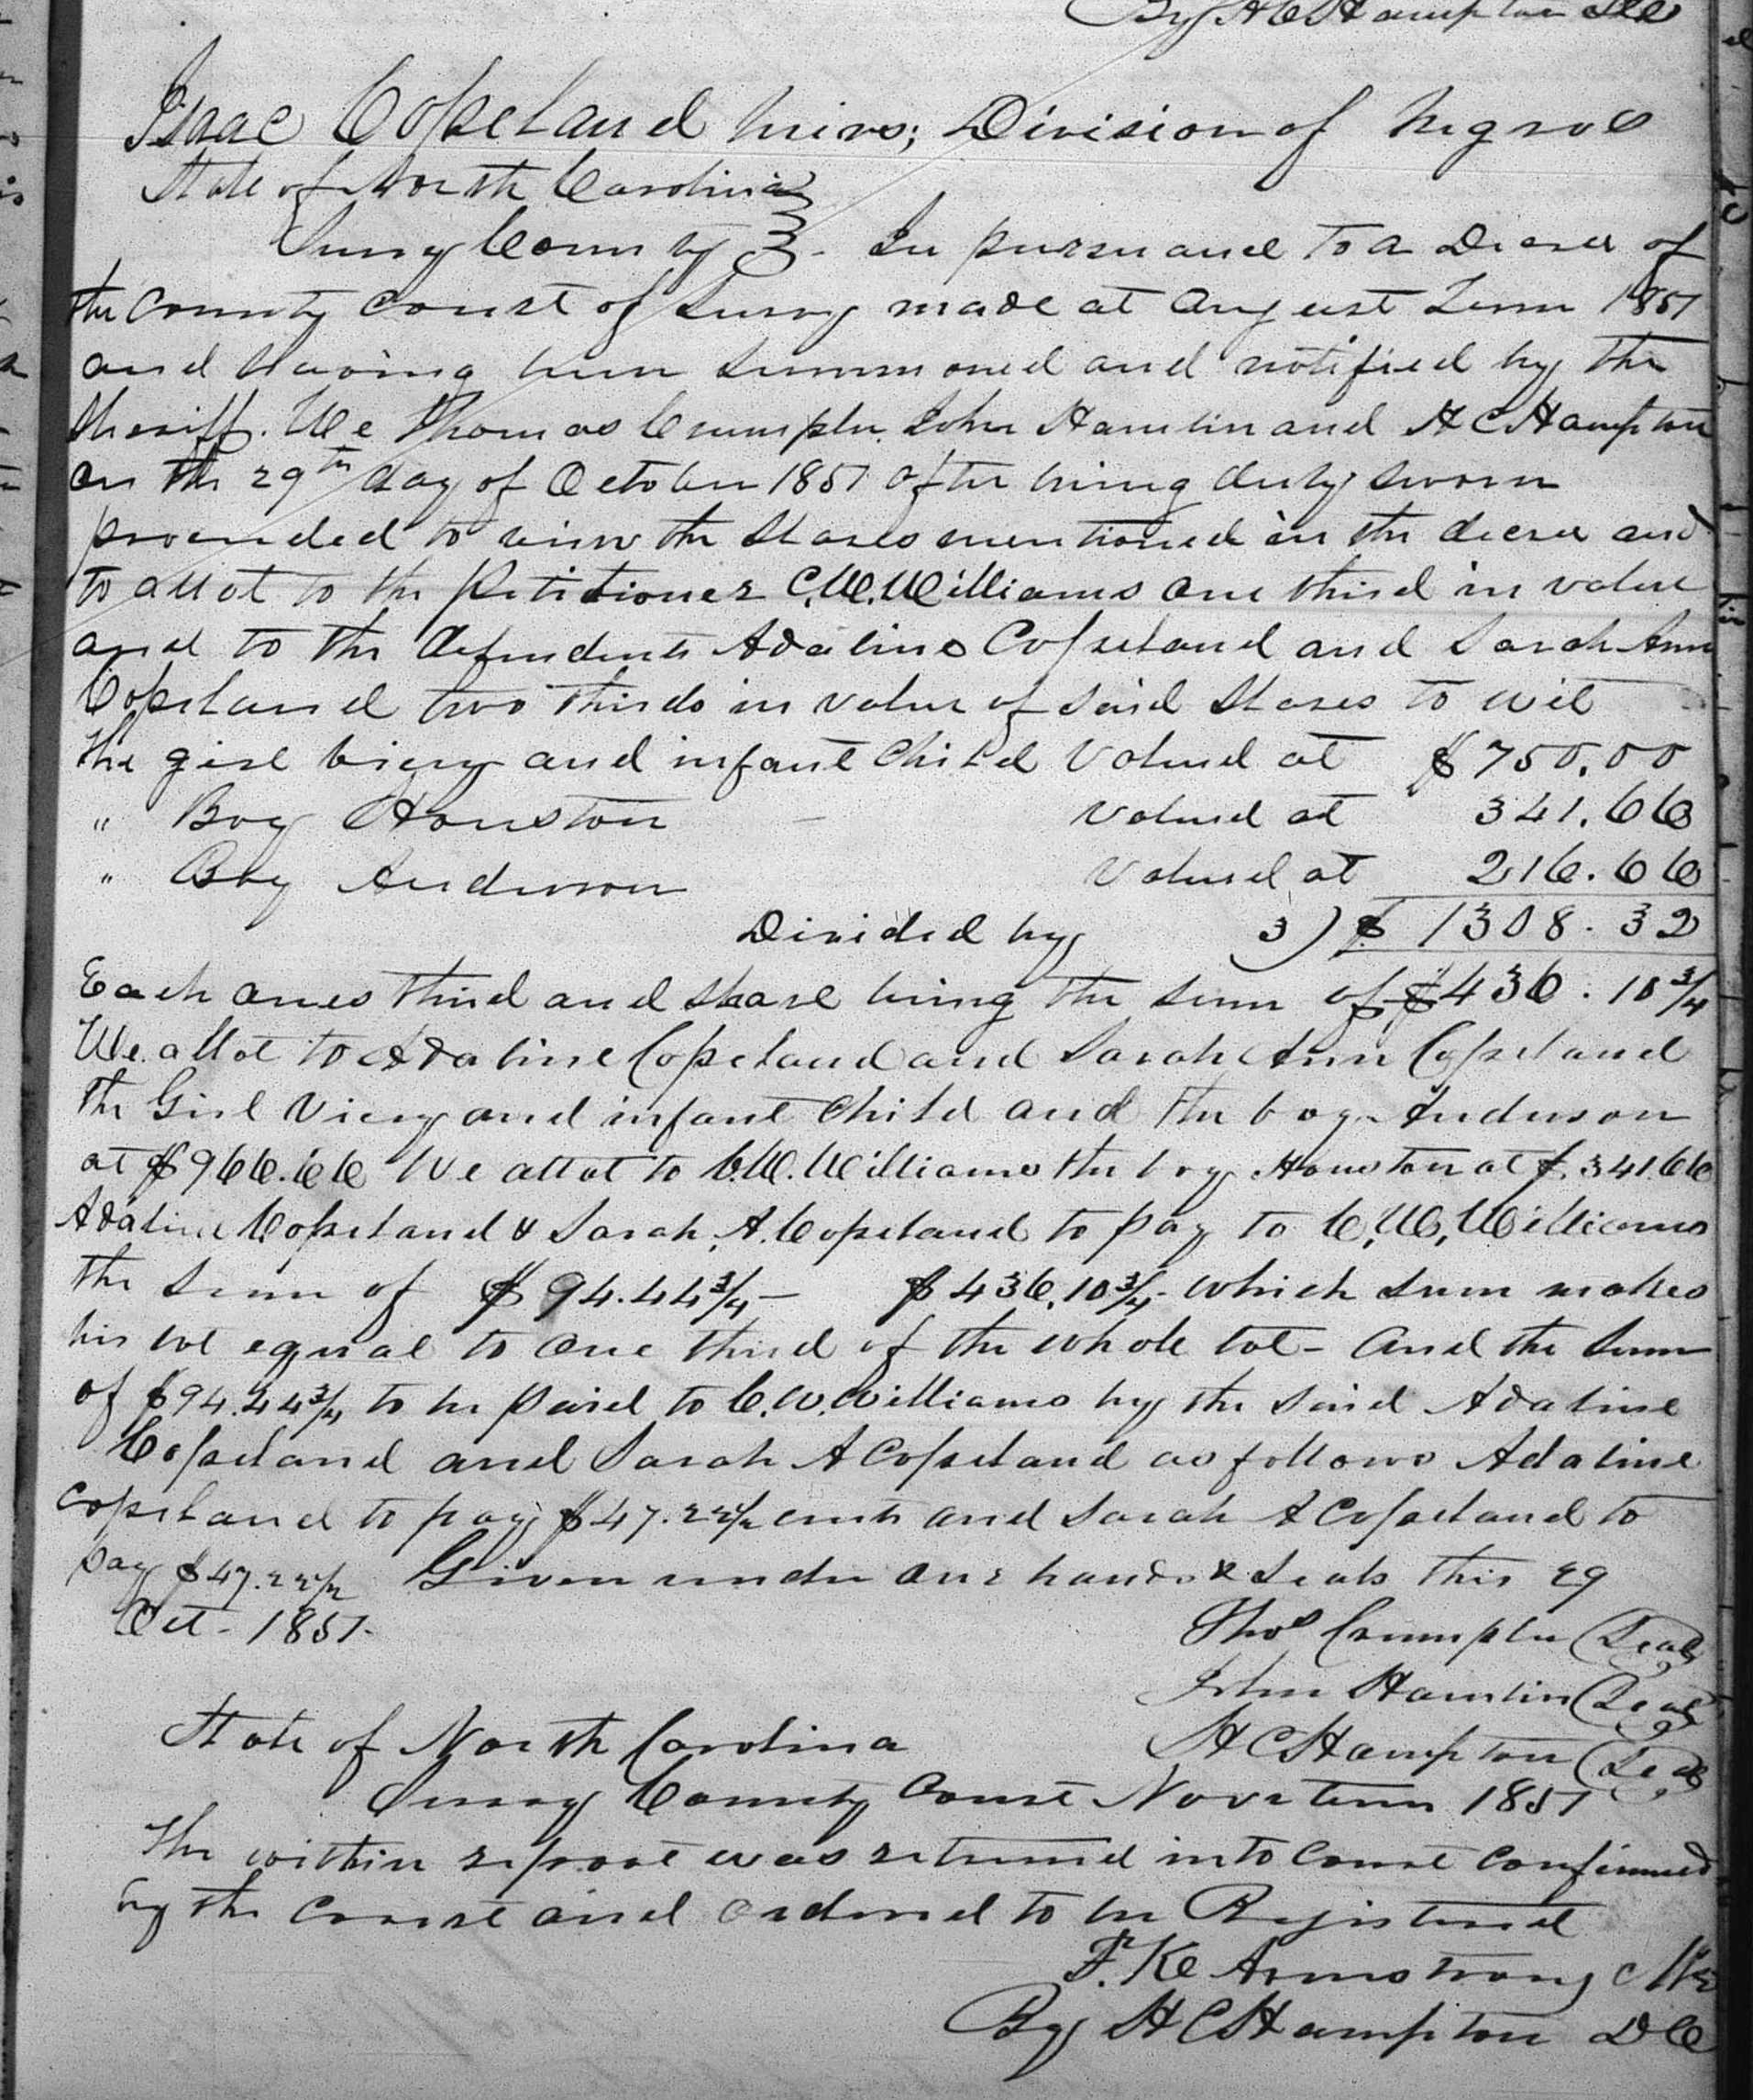 By H C Hampton D C
Isaac Copeland heirs; Division of Negroes
State of North Carolina
Surry County In pursuance to a Decree of
the County Court of Surry made at August Term 1851
and having been summoned and notified by the
Sheriff. We Thomas Crumpler John Hamlin and H C Hampton
on the 29th day of October 1851 after being duly sworn
proceeded to view the slaves mentioned in the decree and
to allot to the Petitioner C. W. Williams one third in value
and to the defendents Adaline Copeland and Sarah Ann
Copeland two thirds in value of said slaves to wit
The girl Vicey and infant child Valued at $750.00
" Boy Houston - Valued at 341.66
" Boy Anderson Valued at 216.66
Divided by 3) $ 1308.32
Each ones third and share being the sum of $436.10 3/4
We allot to Adaline Copeland and Sarah Ann Copeland
the Girl Vicey and infant child and the boy Anderson
at $966.66 We allot to C. W. Williams the boy Houston at $341.66
Adaline Copeland & Sarah A. Copeland to pay to C. W. Williams
the sum of $94.44 3/4 - $436.10 3/4 - which sum makes
his lot equal to one third of the whole lot - and the sum
of $94.44 3/4 to be paid to C. W. Williams by the said Adaline
Copeland and Sarah A Copeland as follows Adaline
Copeland to pay $47.22 1/2 cents and Sarah A Copeland to
pay $47.22 1/2 Given under our hands & seals this 29
Oct - 1851.
Thos Crumpler (Seal)
John Hamlin (Seal)
State of North Carolina H C Hampton (Seal)
Surry County Court Novr term 1851
The within report was returned into Court confirmed
by the Court and ordered to be Registered
F. K. Armstrong Clk
By H C Hampton D C